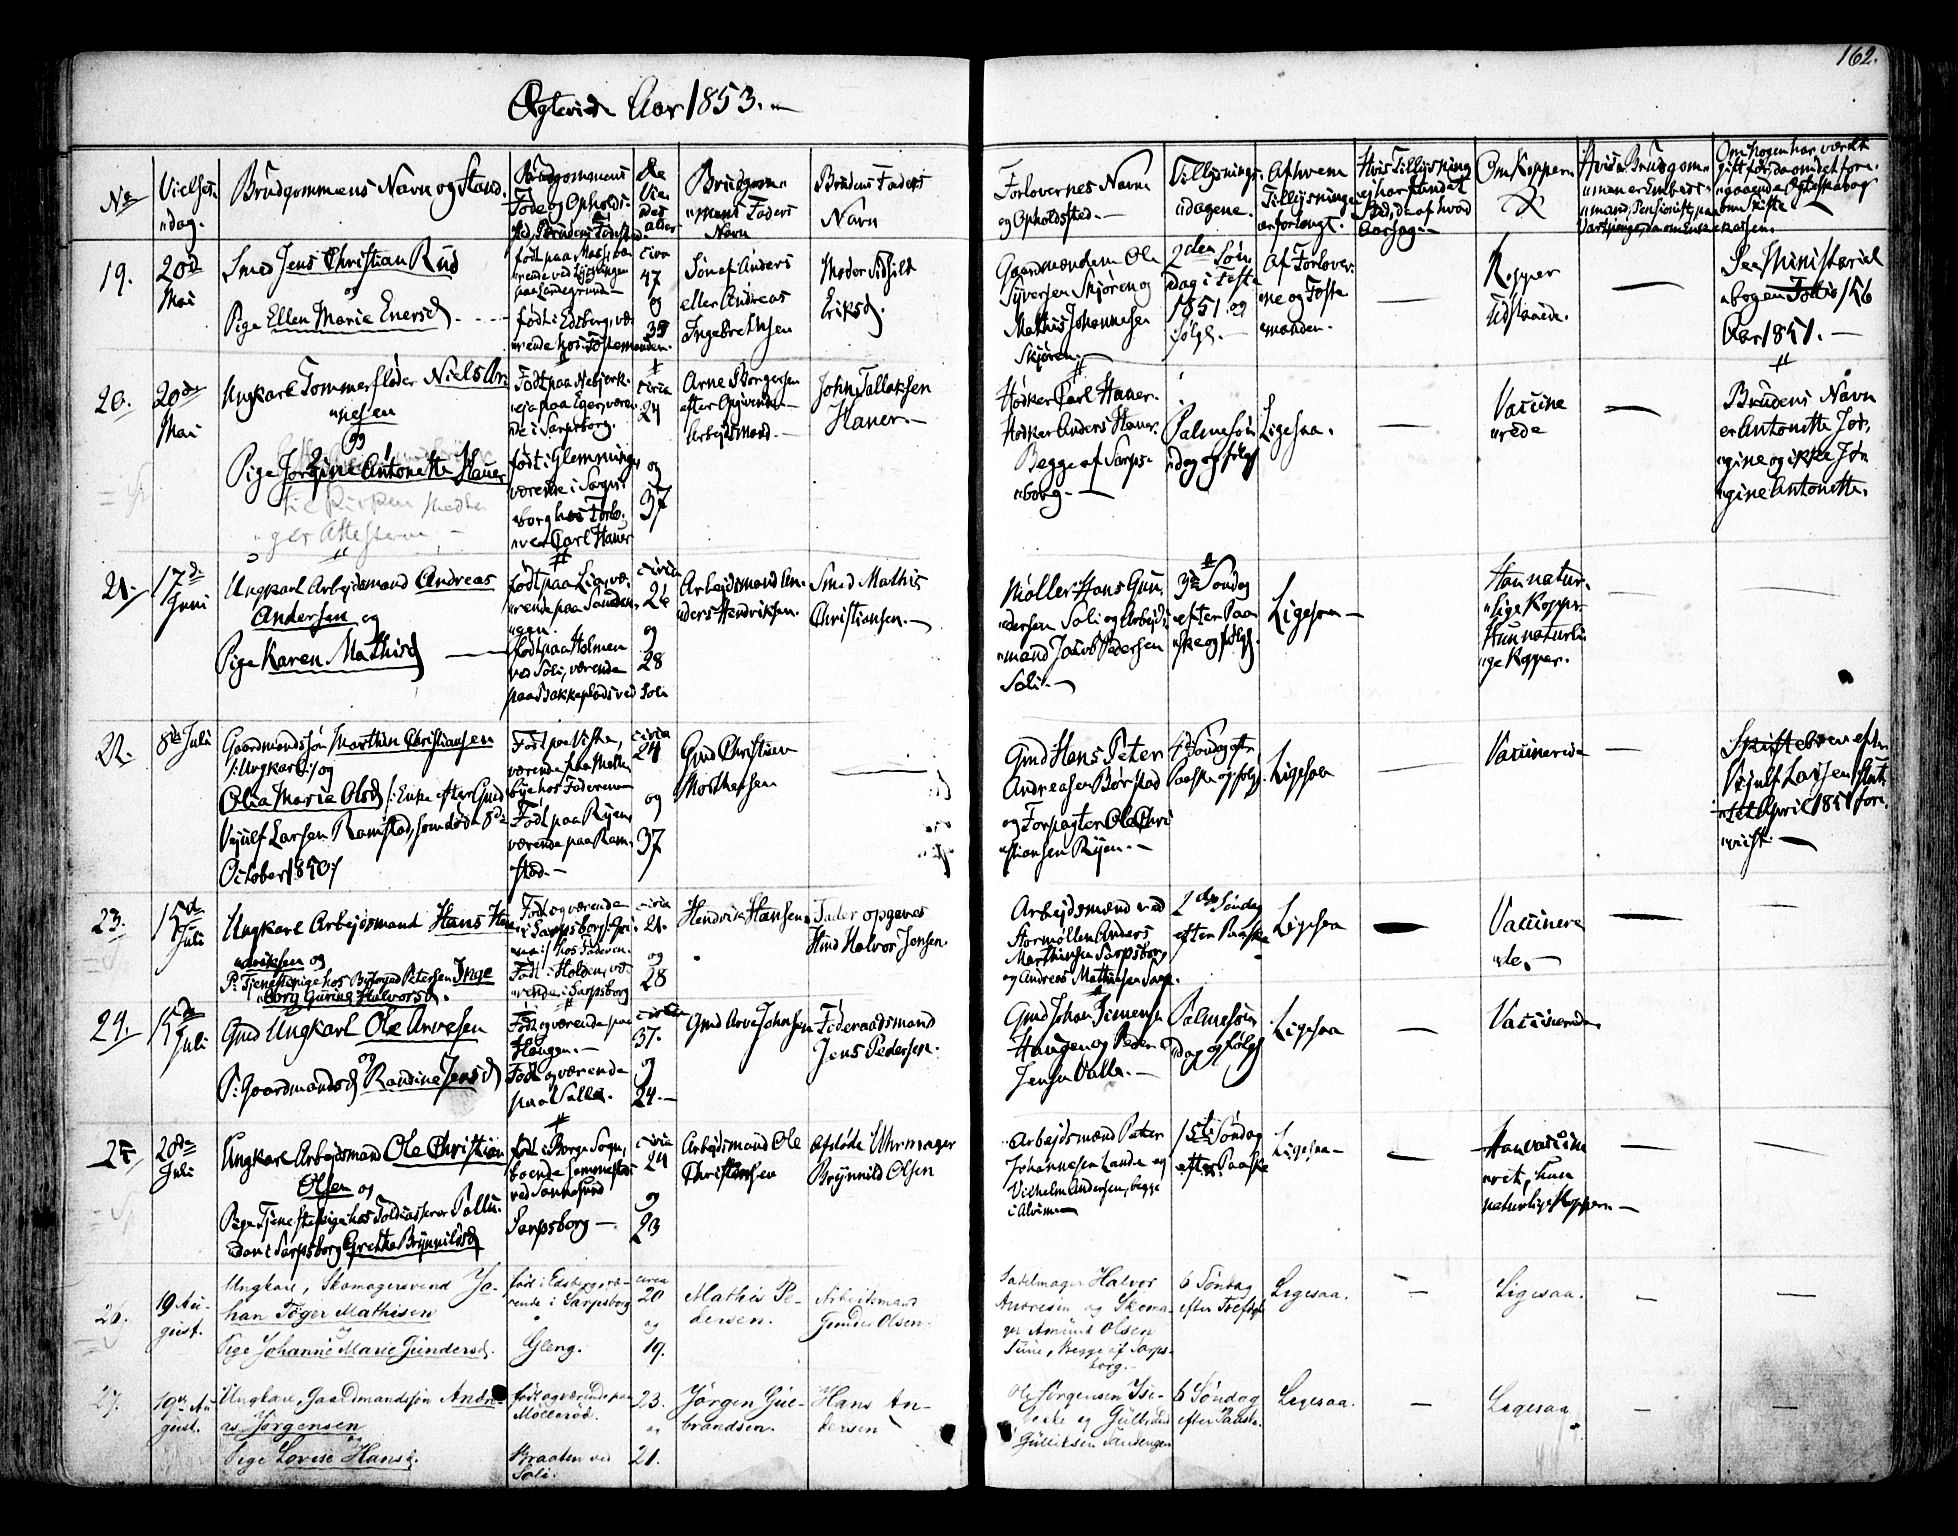 162.
Ægteviede Aar 1853.
No
Vielses-
dag.
Brudgommens Navn og Stand.
Brudgommens
Føde og Opholds-
sted, Brudens Fødested.
Alder
Brudgom-
mens Faders
Navn
Brudens Faders
Navn
Forlovernes Navn
og Opholdssted.
Tillysnings-
dagene.
Af hvem
Tillysningen
er forlangt.
Hvis Tillysning
ei har fundet
Sted, da af hvad
Aarsag.
Om Kopper
Hvis Brudgom-
men er Embeds-
mand, Pensionist,
Om Nogen har været
gift før, da om det fore-
gaaende Ægteskab
19.
20de
Mai
Smed Jens Christian Rud
og
Pige Ellen Marie Eversd.
født i Edsberg, væ-
rende hos Fostermanden.
circa
47
og
39
Søn af Anders
eller Andreas
Ingebrethsen
Moder Sidsill
Eriksd.
Gaardmændene Ole
Syversen Skjøren og
Mathis Johannesen
Skjøren.
2den Søn-
dag i Faste
1851 og
følg.
Af Forlover-
ne og Foster-
manden.
Kopper
udstaaede.
See Ministerial
bogen Folio 156
Aar 1851.
20.
20de
Mai
Ungkarl Tømmerfløder Niels Ar-
nesen
og
Pige Jørgine Antonette Hauer
født i Glemminge,
værende i Sarps-
borg hos Forlo-
ver Carl Hauer
circa
24
og
37
Arne Borgersen
efter Opgivende
Arbejdsmand.
John Tallaksen
Hauer.
Høker Carl Hauer.
Høker Anders Hauer.
Begge af Sarps-
borg.
Palmesøn-
dag og følg.
Ligesaa.
Vaccine-
rede
Brudens Navn
er Antonette Jør-
gine og ikke Jør-
gine Antonette.
21.
17de
Juni
Ungkarl Arbejdsmand Andreas
Andersen og
Pige Karen Mathisd.
født paa Lie, væ-
rende paa Sanden-
gen.
født paa Holmen
ved Soli, værende
paa Bakkeplads ved Soli
circa
26
og
28
Arbejdsmand An-
ders Hendriksen.
Smed Mathis
Christiansen.
Møller Hans Gun-
dersen Soli og Arbejds-
mand Jacob Pedersen
Soli.
3die Søndag
efter Paa-
ske og følg.
Ligesaa
Han natur-
lige Kopper
Hun naturli-
ge Kopper.
22.
8de Juli
Gaardmandssøn Marthin Christiansen
/:Ungkarl:/ og
Olea Maria Olsd. /:Enke efter Gmd
Vejulf Larsen Ramstad, som døde 8de
October 1850:/
Født paa Ryen,
værende paa Ram-
stad.
circa
24
og
37
Gmd Christian
Morthensen
Gmd Hans Peter
Andreasen Børstad
og Forpagter Ole Chri-
stiansen Ryen.
4de Søndag efter
Paaske og følg.
Ligesaa
Vaccinerede
Skiftebrev efter
Vejulf Larsen
April 1851 fore-
viist.
23.
15de
Juli
Ungkarl Arbejdsmand Hans Hen-
driksen og
P. Tjenestepige hos Byfoged Petersen Inge-
borg Gurine Halvorsd.
Født og værende
i Sarpsborg
hos Faderen.
Født i Holden, væ-
rende i Sarpsborg
circa
21.
og
28
Hendrik Hansen
Fader opgives
Hmd Halvor Jensen
Arbejdsmænd ved
Stormøllen Anders
Marthinsen Sarpsborg
og Andreas Mathiesen Sarp.
2den Søndag
efter Paaske
Ligesaa
Vaccinere-
de.
24.
15de
Juli
Gmd Ungkarl Ole Arvesen
og
P. Gaardmandsd. Randine Jensd.
Født og værende paa
Haugen.
Født og værende
paa Valle.
circa
37.
og
24.
Gmd Arve Johnsen
Føderaadsmand
Jens Pedersen.
Gmd Johan Simensen
Haugen og Peder
Jensen Valle.
Palmesøn-
dag og følg.
Ligesaa
Vaccinerede
25
20de
Juli
Ungkarl Arbejdsmand Ole Christian
Olsen og
Pige Tjenestepige hos Toldkasserer Pallu-
dan i Sarpsborg Grethe Brynnildsd.
født i Borge Sogn,
boende sammesteds
ved Sannesund
Sarpsborg
circa
24
og
23
Arbejdsmand Ole
Christophersen
afdøde Uhrmager
Brynnild Olsen
Arbejdsmænd Peter
Johannesen Lande og
Vilhelm Andersen, begge
i Alvim
1ste Søndag
efter Paaske
Ligesaa
Han vaccine-
ret, hun
naturlige Kopper.
26.
19 Au-
gust.
Ungkarl, Skomagersvend Jo-
han Tøger Mathisen
og
Pige Johanne Marie Gundersd.
født i Edsberg, væ-
rende i Sarpsborg
Gleng.
circa
20
og
19.
Mathis Pe-
dersen.
Arbeidsmand
Gunder Olsen.
Sadelmager Halvor
Andresen og Skoma-
ger Amund Olsen
Tune, Begge af Sarps-
borg.
6 Søndag
efter Trefold.
Ligesaa.
Ligesaa.
27.
19de Au-
gust.
Ungkarl, Gaardmandssøn Andre-
as Jørgensen
og
Pige Lovise Hansd.
født og værende paa
Møllerød.
Braaten ved
Soli.
23.
og
21.
Jørgen Gul-
brandsen.
Hans An-
dersen
Ole Jørgensen
og Gulbrand
Gulliksen Sandengen
6 Søndag
efter Paaske.
Ligesaa.
Ligesaa